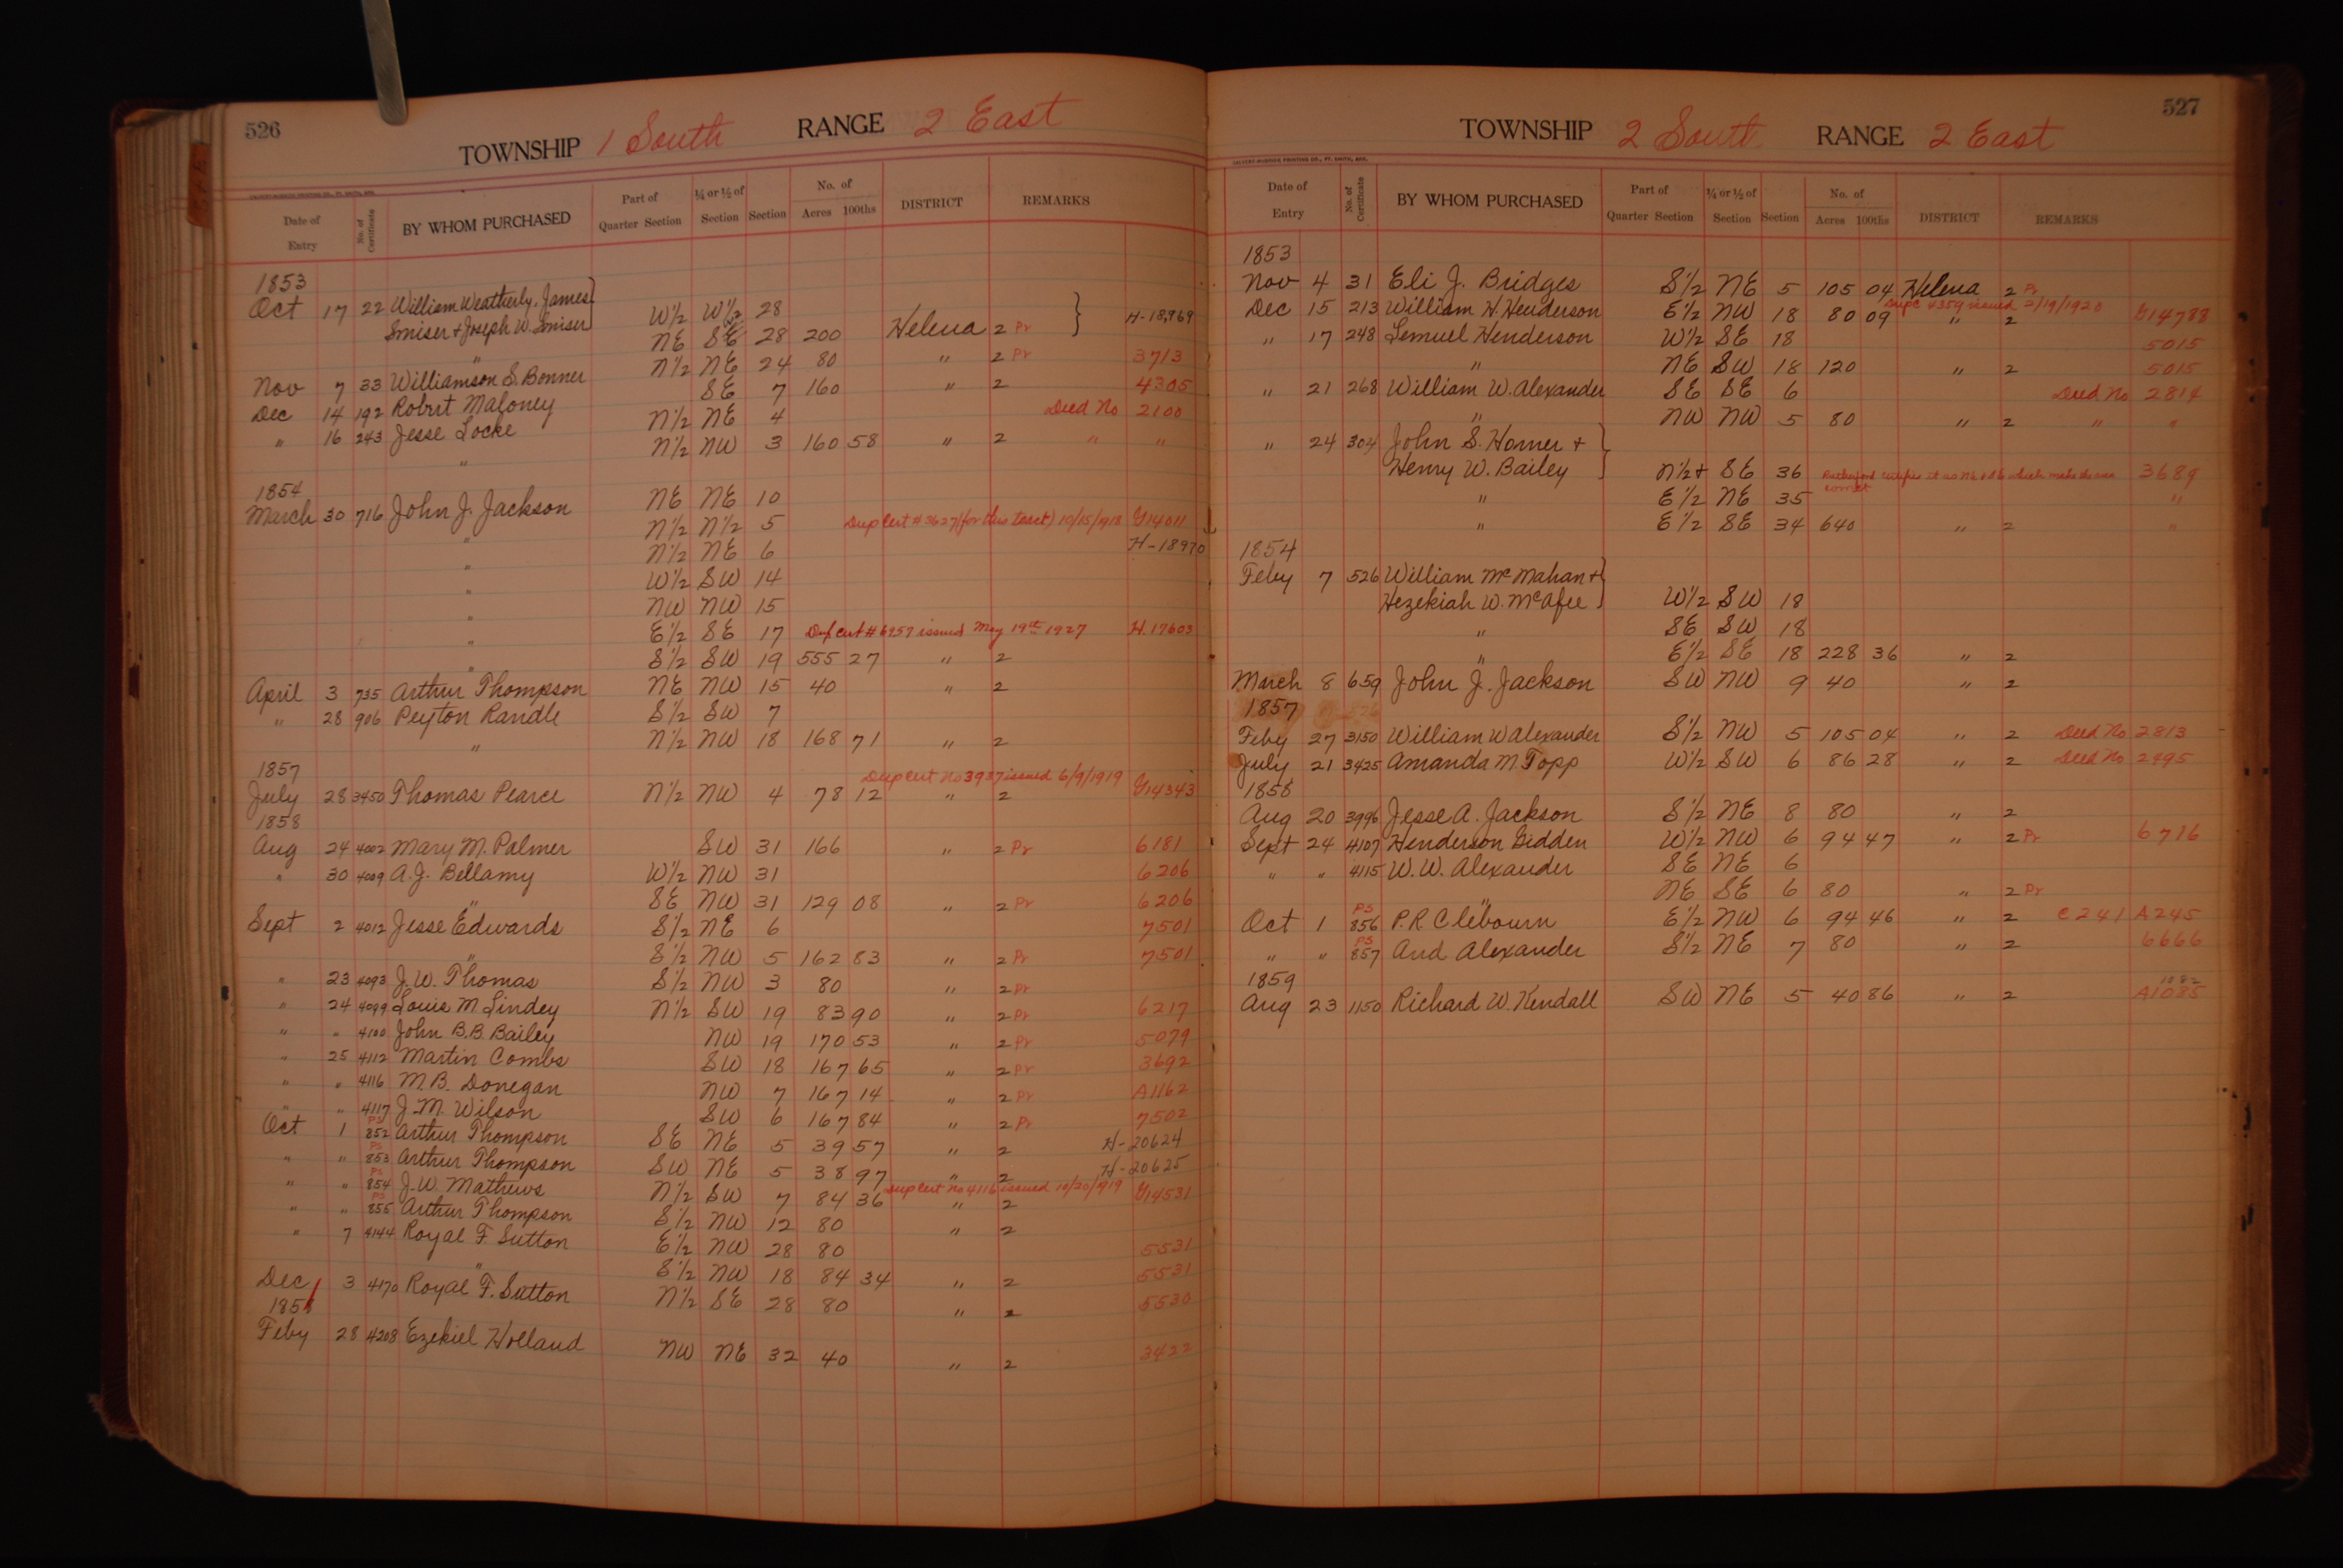 526
TOWNSHIP 1 South RANGE 2 East
Date of Entry No. of Certificate BY WHOM PURCHASED Part of Quarter Section ¼ or ½ of Section Section No. of Acres 100ths DISTRICT REMARKS
1853
Oct 17 22 William Weatherly, James }
Smiser & Joseph W. Smiser W½ W½ 28
" NE SE 28 200 Helena 2 Pr } H-18,969
N½ NE 24 80 " 2 Pr 3713
Nov 7 33 Williamson S. Bonner SE 7 160 " 2 4305
Dec 14 192 Robert Maloney N½ NE 4 Deed No 2100
" 16 243 Jesse Locke N½ NW 3 160 58 " 2 " "
"
1854
March 30 716 John J. Jackson NE NE 10
" N½ N½ 5 Dup Cert # 3627 (for this tract) 10/15/1918 G14011
" N½ NE 6 H-18970
" W½ SW 14
" NW NW 15
" E½ SE 17 Dup cert # 6957 issued May 19th 1927 H.17603
" S½ SW 19 555 27 " 2
April 3 735 Arthur Thompson NE NW 15 40 " 2
" 28 906 Peyton Randle S½ SW 7
" N½ NW 18 168 71 " 2
1857 Dup cert no 3937 issued 6/9/1919
July 28 3450 Thomas Pearce N½ NW 4 78 12 " 2 G14343
1858
Aug 24 4002 Mary M. Palmer SW 31 166 " 2 Pr 6181
" 30 4009 A.J. Bellamy W½ NW 31 6206
" SE NW 31 129 08 " 2 Pr 6206
Sept 2 4012 Jesse Edwards S½ NE 6 7501
" S½ NW 5 162 83 " 2 Pr 7501
" 23 4093 J. W. Thomas S½ NW 3 80 " 2 Pr
" 24 4099 Louis M. Lindey N½ SW 19 83 90 " 2 Pr 6217
" " 4100 John B.B. Bailey NW 19 170 53 " 2 Pr 5079
" 25 4112 Martin Combs SW 18 167 65 " 2 Pr 3692
" " 4116 M.B. Donegan NW 7 167 14 " 2 Pr A1162
" " 4117 J.M. Wilson SW 6 167 84 " 2 Pr 7502
Oct 1 PS 852 Arthur Thompson SE NE 5 39 57 " 2 H-20624
" " PS 853 Arthur Thompson SW NE 5 38 97 " 2 H-20625
" " PS 854 J.W. Mathews N½ SW 7 84 36 Dup cert no 4116 issued 10/20/1919 " 2 G14531
" " PS 855 Arthur Thompson S½ NW 12 80 " 2
" 7 4144 Royal F. Sutton E½ NW 28 80 5531
" S½ NW 18 84 34 " 2 5531
Dec 3 4170 Royal F. Sutton N½ SE 28 80 " 2 5530
185
Feby 28 4208 Ezekiel Holland NW NE 32 40 " 2 3422
527
TOWNSHIP 2 South RANGE 2 East
CALVERT-McBRIDE PRINTING CO., FT. SMITH, ARK.
Date of Entry No. of Certificate BY WHOM PURCHASED Part of Quarter Section ¼ or ½ of Section Section No. of Acres 100ths DISTRICT REMARKS
1853
Nov 4 31 Eli J. Bridges S½ NE 5 105 04 Helena 2 Pr
Dec 15 213 William H. Henderson E½ NW 18 80 09 Dup C 4359 issued 2/19/1920 " 2 G14788
" 17 248 Lemuel Henderson W½ SE 18 5015
" NE SW 18 120 " 2 5015
" 21 268 William W. Alexander SE SE 6 Deed No 2814
" NW NW 5 80 " 2 " "
" 24 304 John S. Horner & }
Henry W. Bailey N½ & SE 36 3689
" E½ NE 35 "
" E½ SE 34 640 " 2 "
1854
Feby 7 526 William McMahan & }
Hezekiah W. McAfee W½ SW 18
" SE SW 18
" E½ SE 18 228 36 " 2
March 8 659 John J. Jackson SW NW 9 40 " 2
1857
Feby 27 3150 William W Alexander S½ NW 5 105 04 " 2 Deed No 2813
July 21 3425 Amanda M Topp W½ SW 6 86 28 " 2 Deed No 2495
1858
Aug 20 3996 Jesse A. Jackson S½ NE 8 80 " 2
Sept 24 4107 Henderson Gidden W½ NW 6 94 47 " 2 Pr 6716
" " 4115 W. W. Alexander SE NE 6
" NE SE 6 80 " 2 Pr
Oct 1 PS 856 P.R. Clebourn E½ NW 6 94 46 " 2 C241 A245
" " PS 857 And Alexander S½ NE 7 80 " 2 6666
1859 1082
Aug 23 1150 Richard W. Kendall SW NE 5 40 86 " 2 A1085